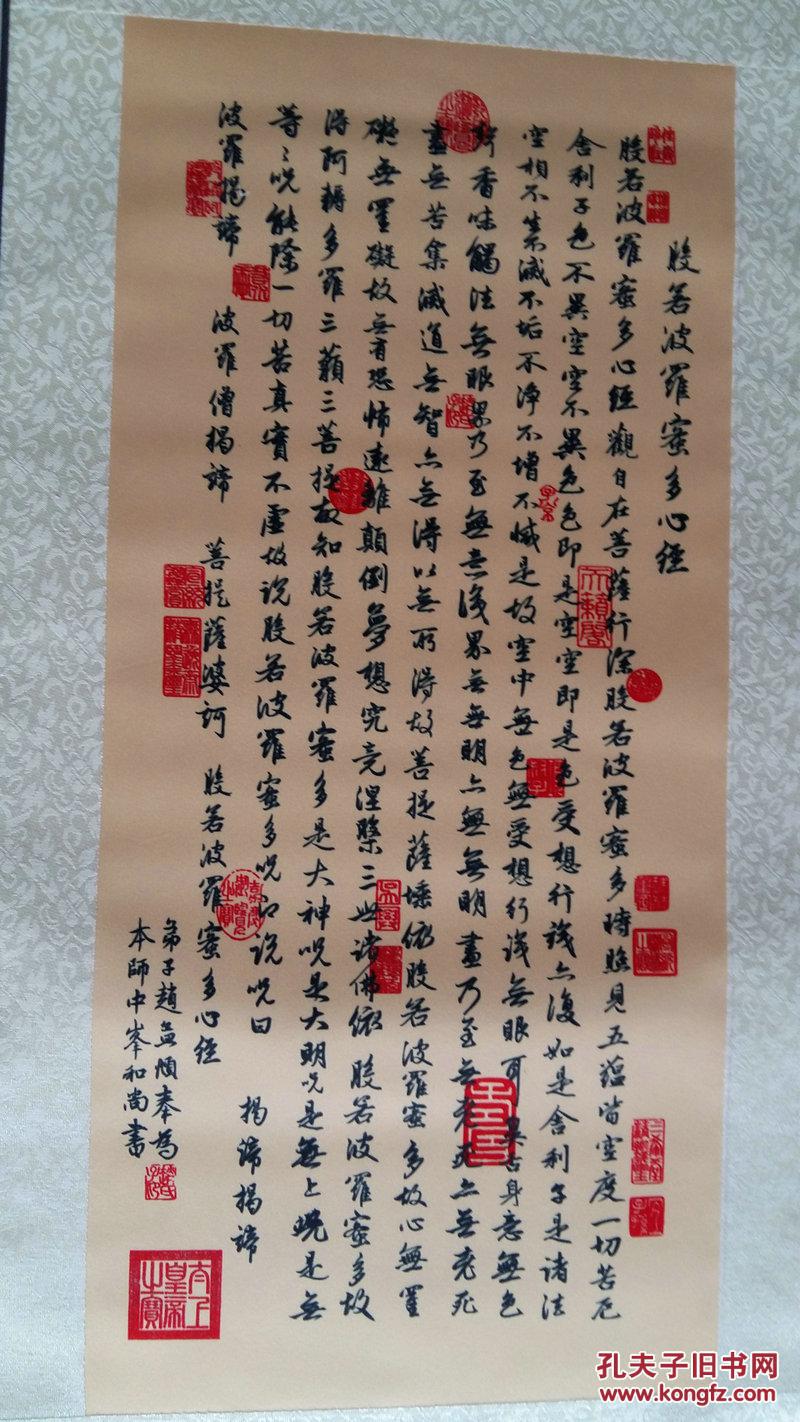 般若波羅蜜多心經
般若波羅蜜多心經觀自在菩薩行深般若波羅蜜多時照見五蘊皆空度一切苦厄
舍利子色不異空空不異色色即是空空即是色受想行識亦復如是舍利子是諸法
空相不生不滅不垢不淨不增不減是故空中無色無受想行識無眼耳鼻舌身意無色
聲香味觸法無眼界乃至無意識界無無明亦無無明盡乃至無老死亦無老死
盡無苦集滅道無智亦無得以無所得故菩提薩埵依般若波羅蜜多故心無罣
礙無罣礙故無有恐怖遠離顛倒夢想究竟涅槃三世諸佛依般若波羅蜜多故
得阿耨多羅三藐三菩提故知般若波羅蜜多是大神咒是大明咒是無上咒是無
等等咒能除一切苦真實不虛故說般若波羅蜜多咒即說咒曰 揭諦揭諦
波羅揭諦 波羅僧揭諦 菩提薩婆訶 般若波羅蜜多心經
弟子趙孟頫奉為
本師中峯和尚書
天籟閣
太上皇帝之寶
孔夫子旧书网
www.kongfz.com